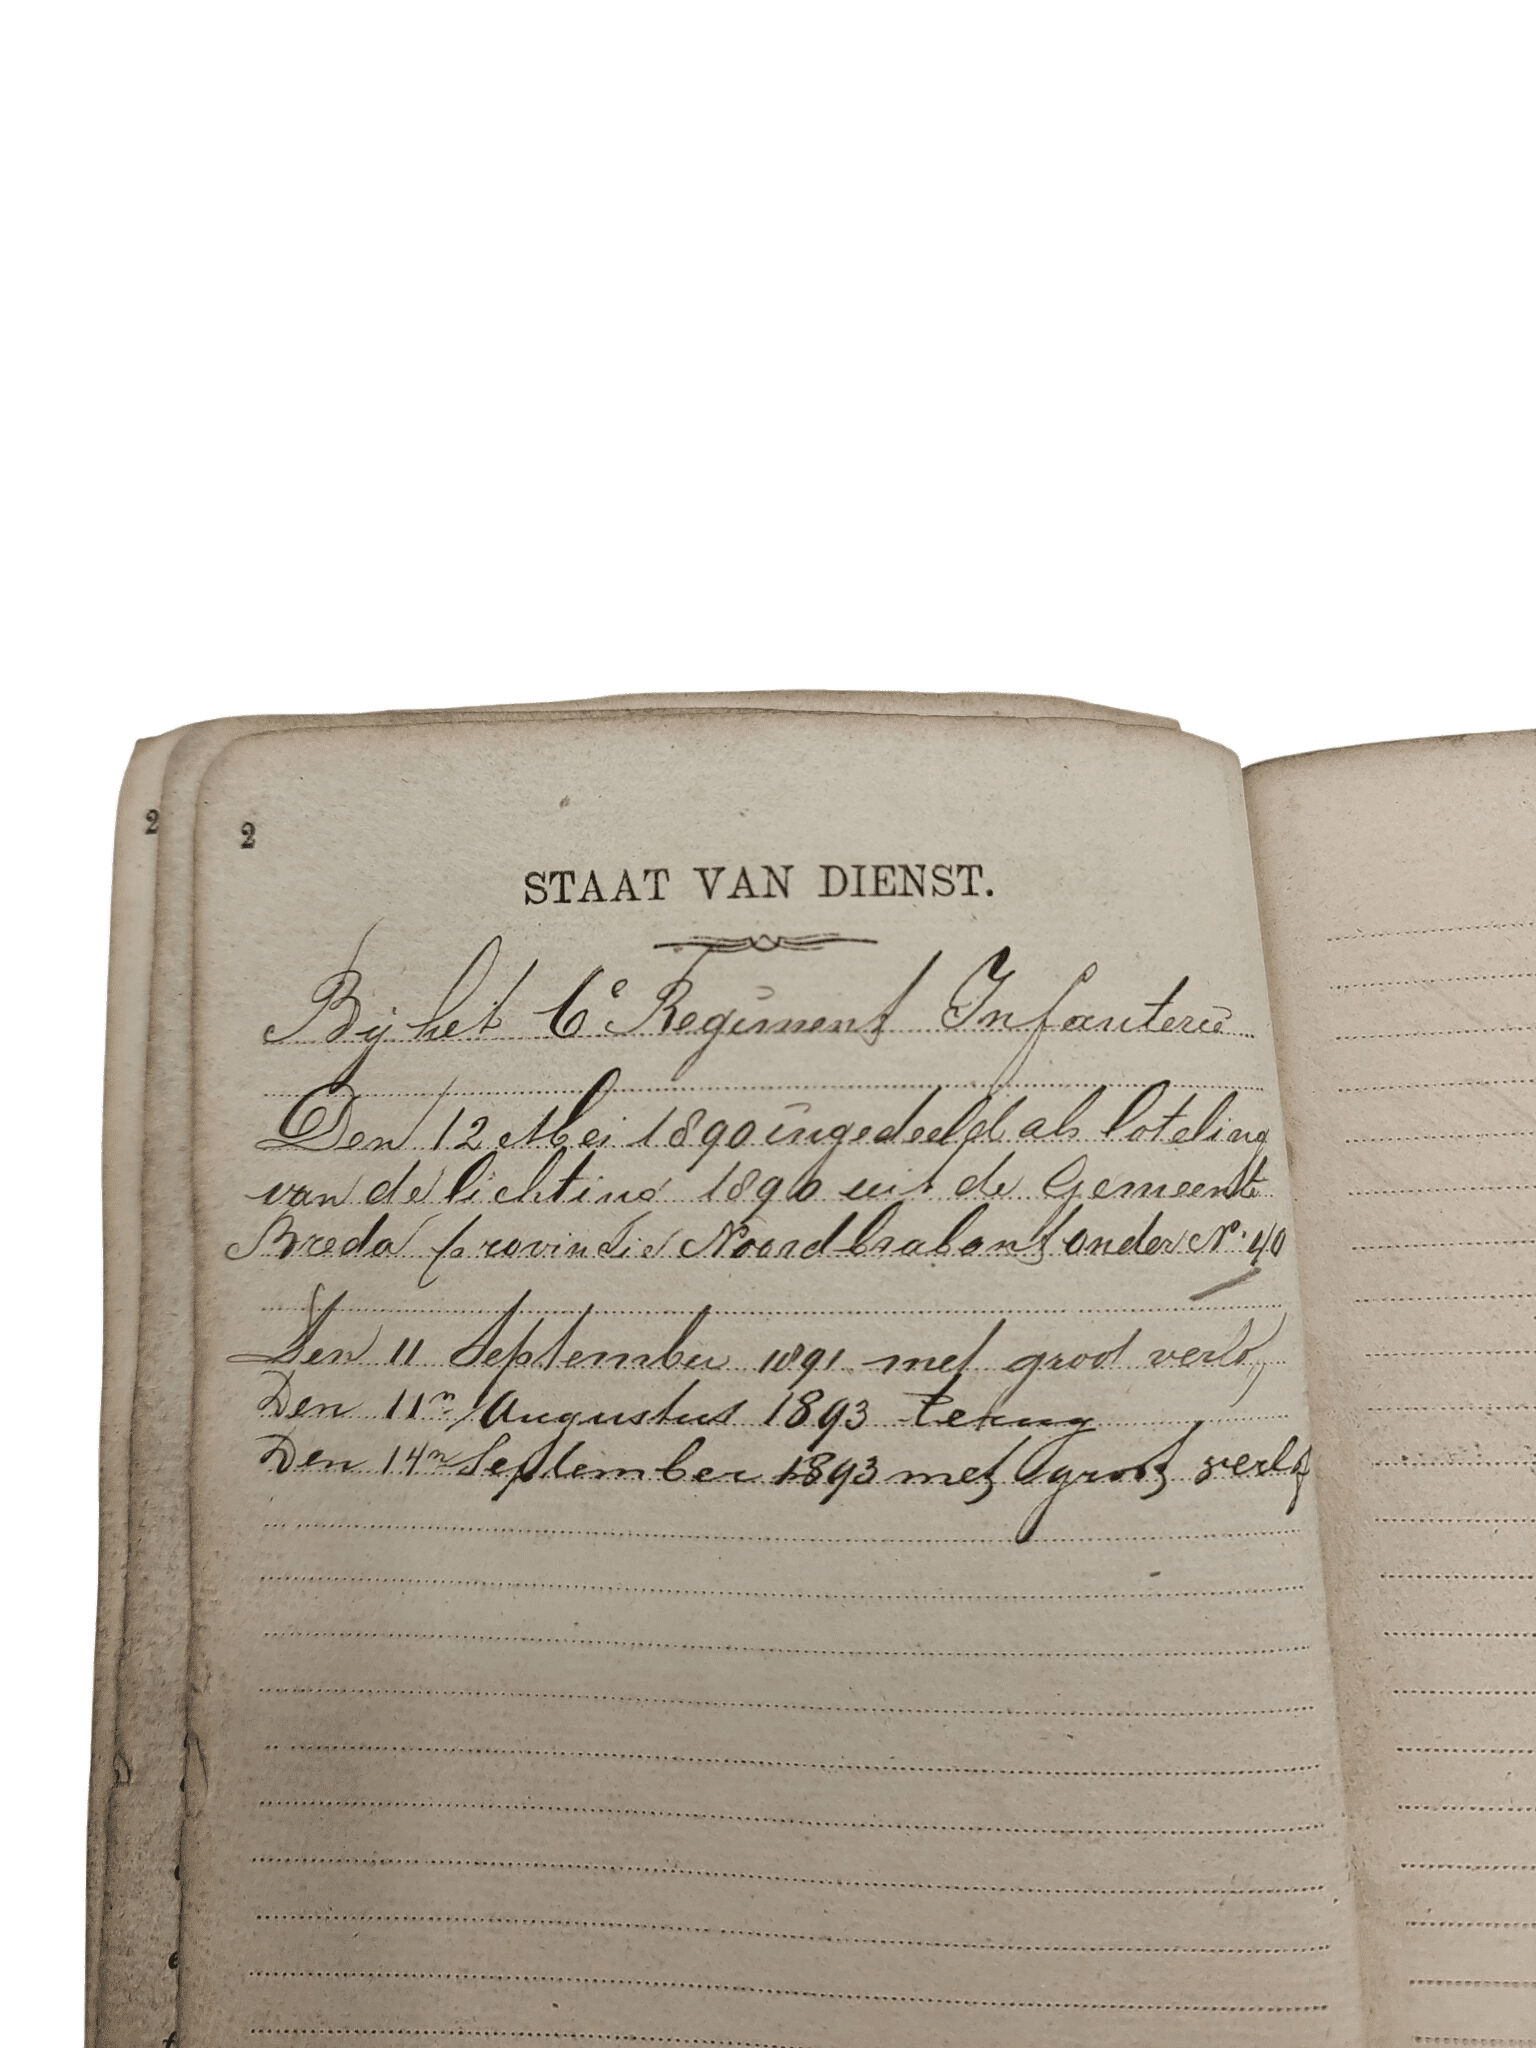 2
2
STAAT VAN DIENST.
Bij het 6e Regiment Infanterie
Den 12 Mei 1890 ingedeeld als loteling
van de lichting 1890 uit de Gemeente
Breda provincie Noordbrabant onder No. 40
Den 11 September 1891 met groot verlof
Den 11n Augustus 1893 terug
Den 14n September 1893 met groot verlof